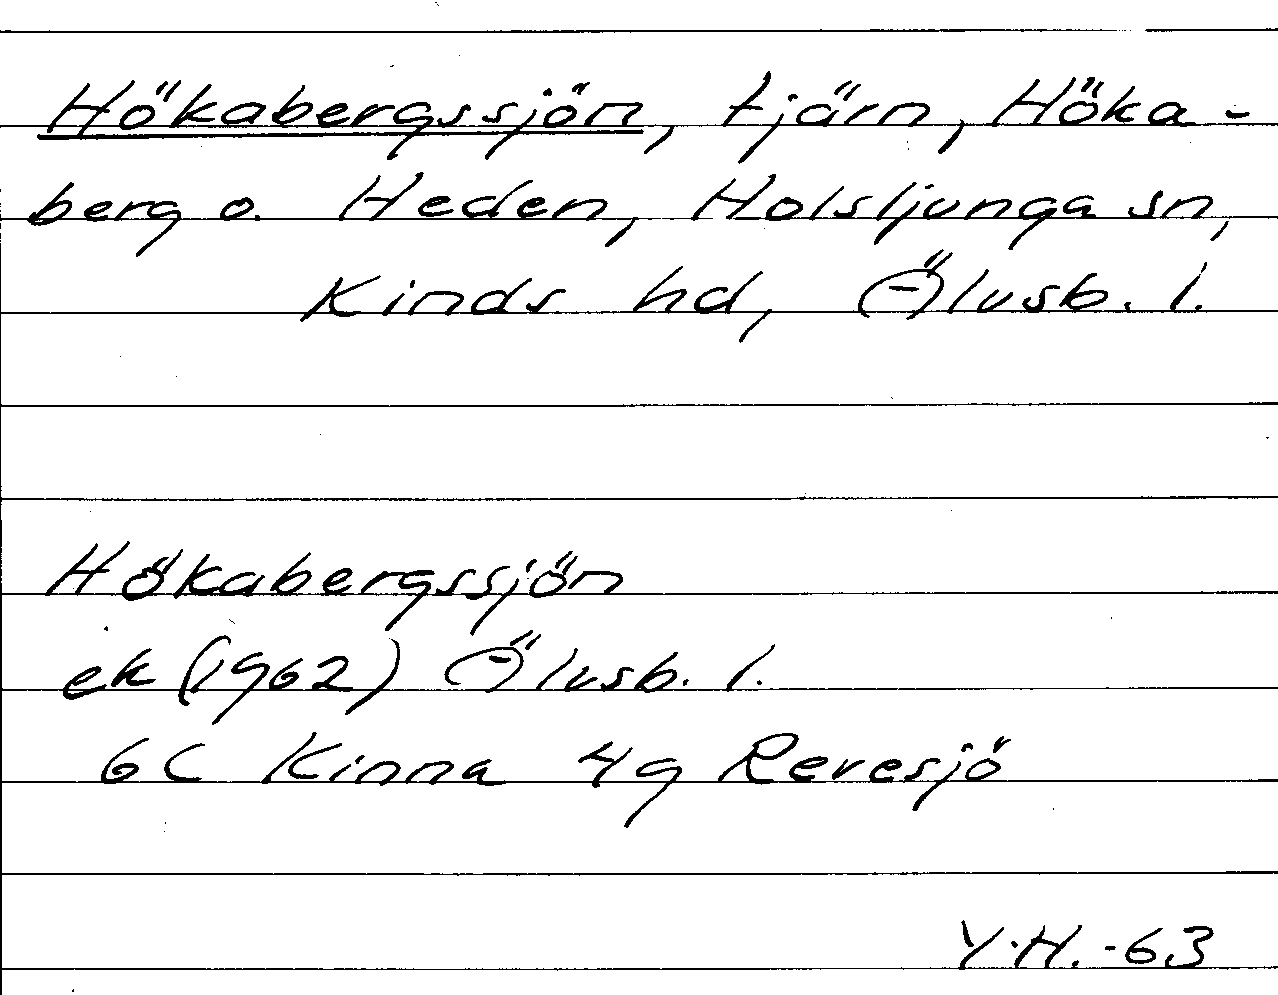 Hökabergssjön, tjärn, Höka-
berg o. Heden, Holsljunga sn,
Kinds hd, Älvsb. l.
Hökabergssjön
ek (1962) Älvsb. l.
6C Kinna 4g Reresjö
Y.H.-63